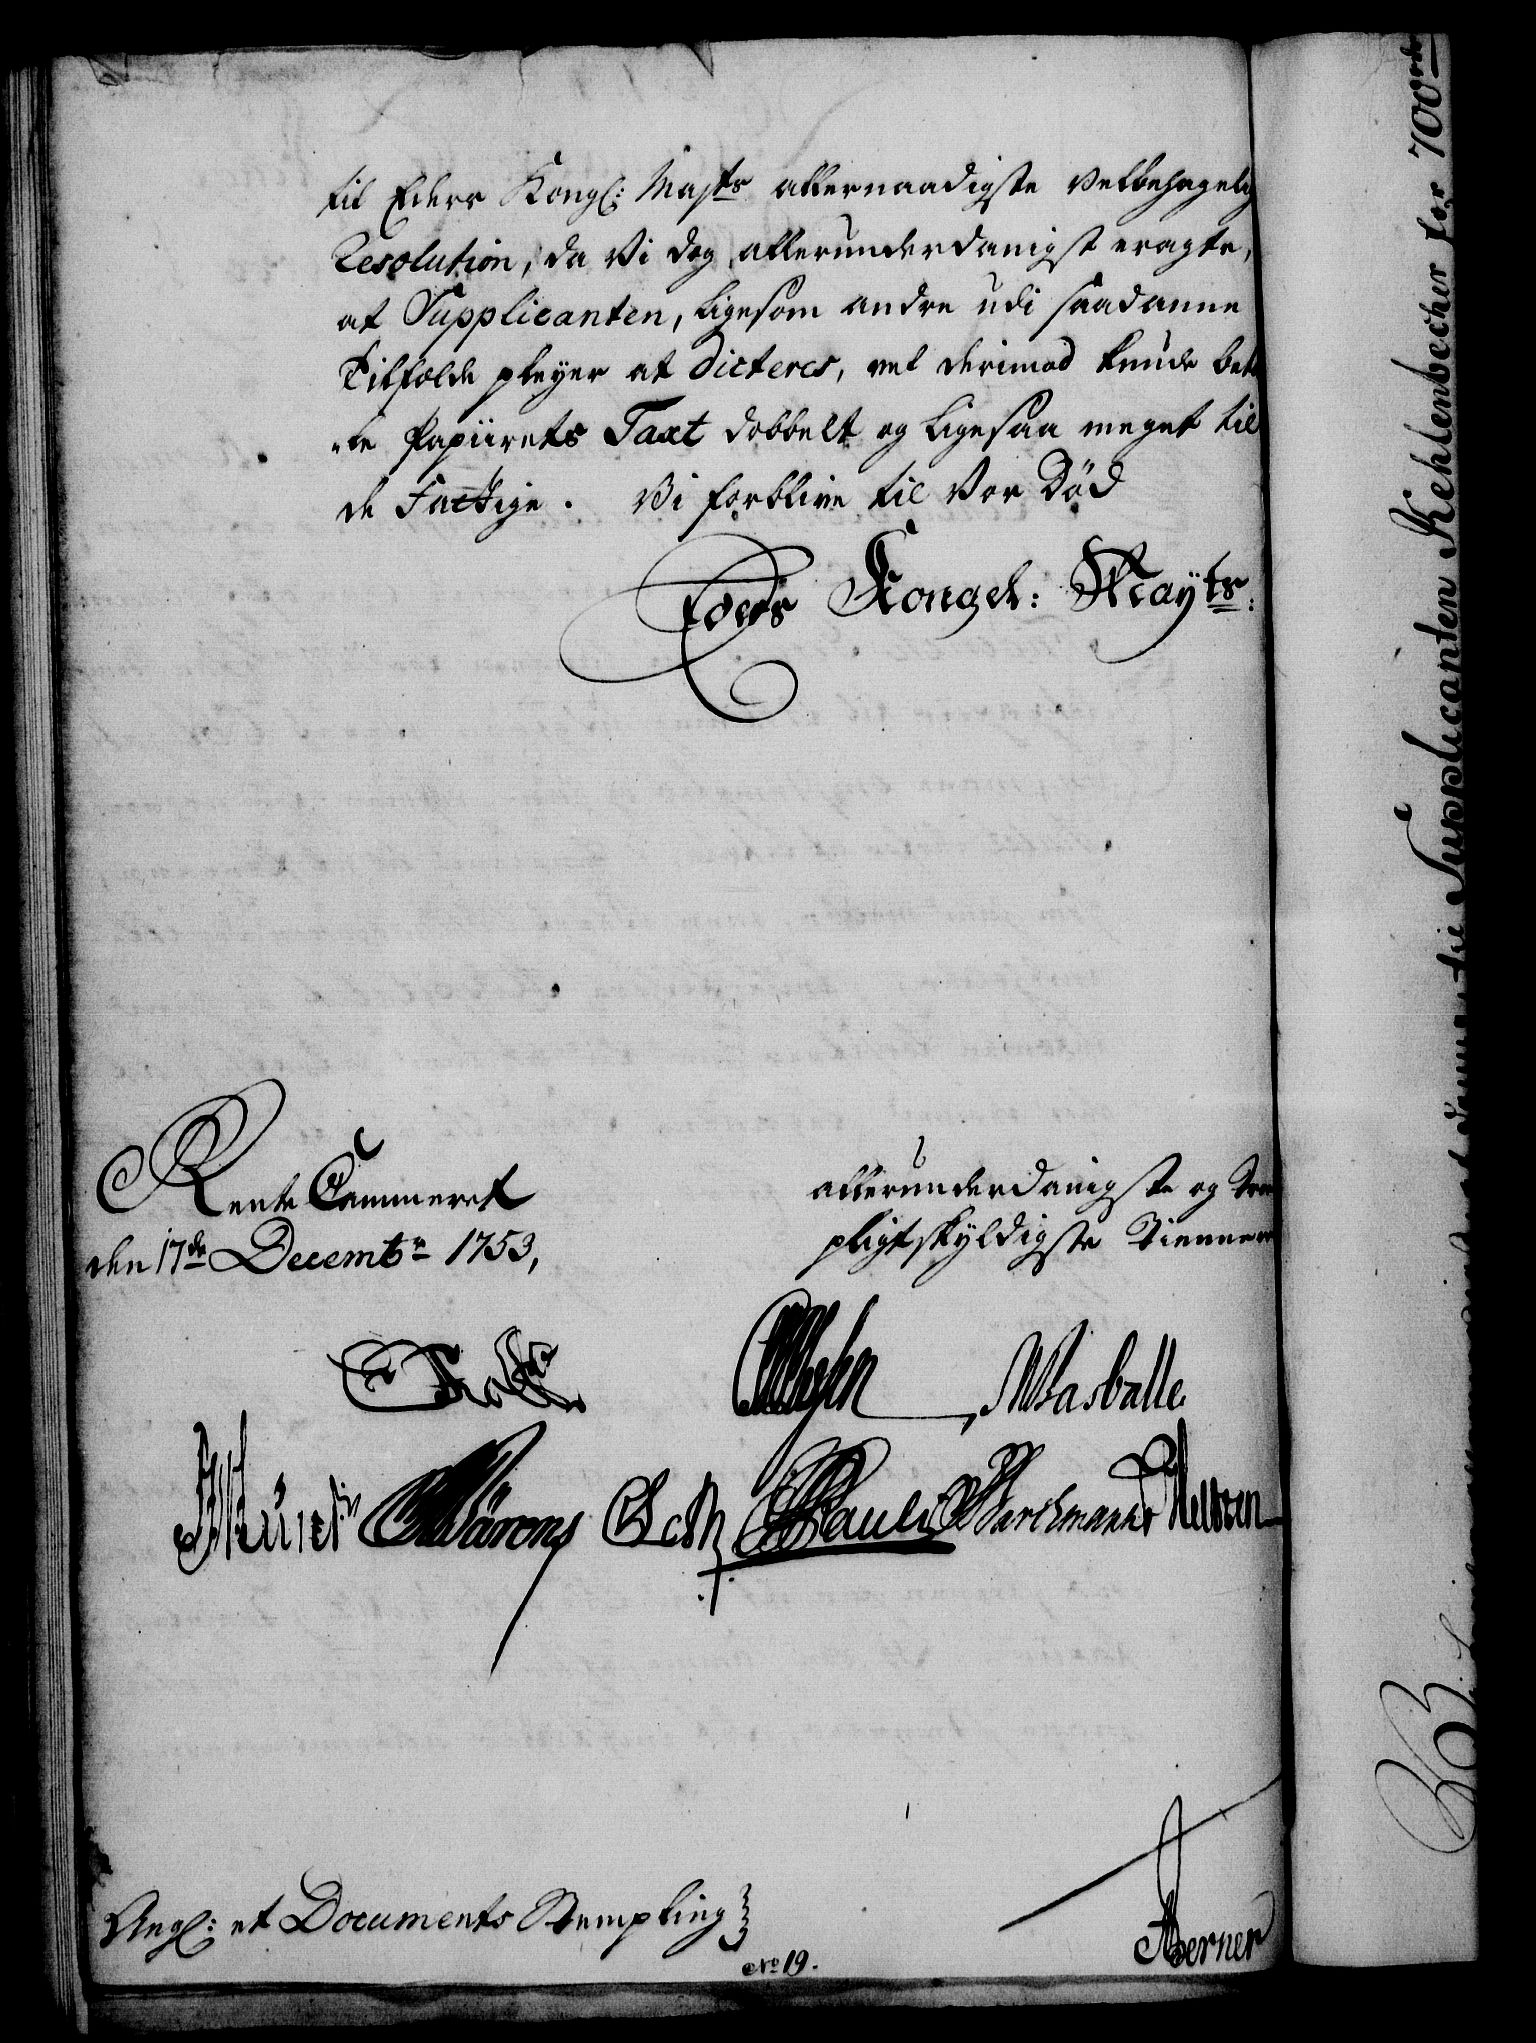 til Eders Kongl: Majts allernaadigste velbehagelig
Resolution, da Vi dog allerunderdanigst eragte,
at Supplicanten, ligesom andre udi saadanne
Tilfælde pleyer at dicteres, vel derimod kunde beta
-le Papiirets Taxt dobbelt og ligesaa meget til
de Fattige. Vi forblive til Vor Død
Eders Kongel: Mayts:
Rente Cammeret
den 17de Decembr 1753,
allerunderdanigste og troe
pligtskyldigste Tiennere
Wasballe
Pauli
Marckmann
Nelwen
Angl: et Documents Stempling
No 19.
Berner
Supplicanten Kehlenbecher for 700 rdr